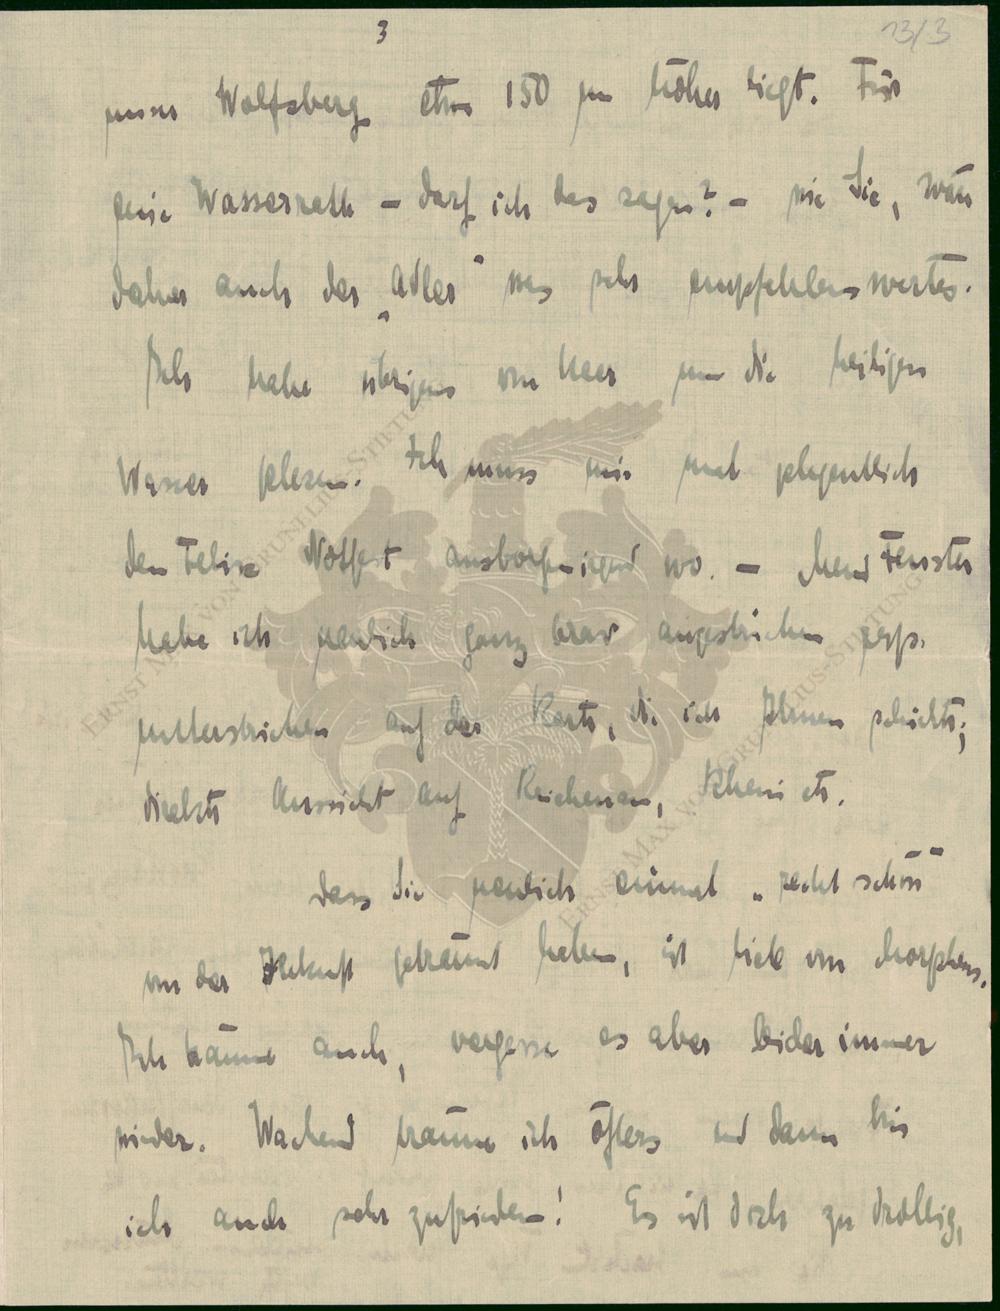 3
13/3
unser Wolfsberg etwa 150 m höher liegt. Für
eine Wasserratte – darf ich das sagen? – wie Sie, wär
daher auch der „Adler" was sehr empfehlenswertes.
Ich habe übrigens von heer um die heiligen
Wasser gelesen. Ich muss mir mal gelegentlich
den Felix Notfest ausborgen irgend wo. – Mein Fenster
habe ich neulich ganz brav angestrichen resp.
unterstrichen auf der Karte, die ich Ihnen schickte;
direkte Aussicht auf Reichenau, Rhein etc.
Dass Sie neulich einmal „recht schön"
von der Zukunft geträumt haben, ist lieb von Morpheus.
Ich träume auch, vergesse es aber leider immer
wieder. Wachend träume ich öfters und dann bin
ich auch sehr zufrieden! Es ist doch zu drollig,
ERNST MAX VON GRUNELIUS-STIFTUNG
ERNST MAX VON GRUNELIUS-STIFTUNG